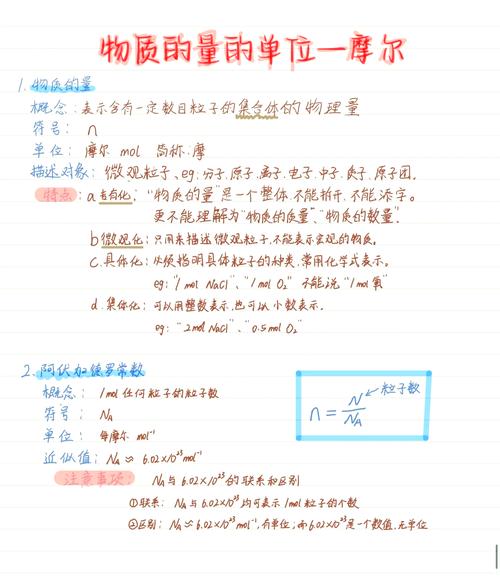 物质的量的单位—摩尔
1. 物质的量
概念：表示含有一定数目粒子的集合体的物理量
符号：n
单位：摩尔 mol 简称：摩
描述对象：微观粒子、eg：分子.原子.离子.电子.中子.质子.原子团.
特点：a 专有化："物质的量"是一个整体.不能拆开.不能添字。
更不能理解为"物质的质量"、"物质的数量".
b 微观化：只用来描述微观粒子.不能表示宏观的物质。
c. 具体化：必须指明具体粒子的种类.常用化学式表示。
eg："1 mol NaCl"、"1 mol O₂" 不能说"1mol氧"
d. 集体化：可以用整数表示.也可以小数表示.
eg："2mol NaCl"、"0.5mol O₂"
2. 阿伏加德罗常数
概念：1mol任何粒子的粒子数
n = N/N_A ←粒子数
符号：N_A
单位：每摩尔 mol⁻¹
近似值：N_A ≈ 6.02×10²³mol⁻¹
注意事项：N_A与6.02×10²³的联系和区别
①联系：N_A与6.02×10²³均可表示1mol粒子的个数
②区别：N_A≈6.02×10²³mol⁻¹,有单位；而6.02×10²³是一个数值.无单位